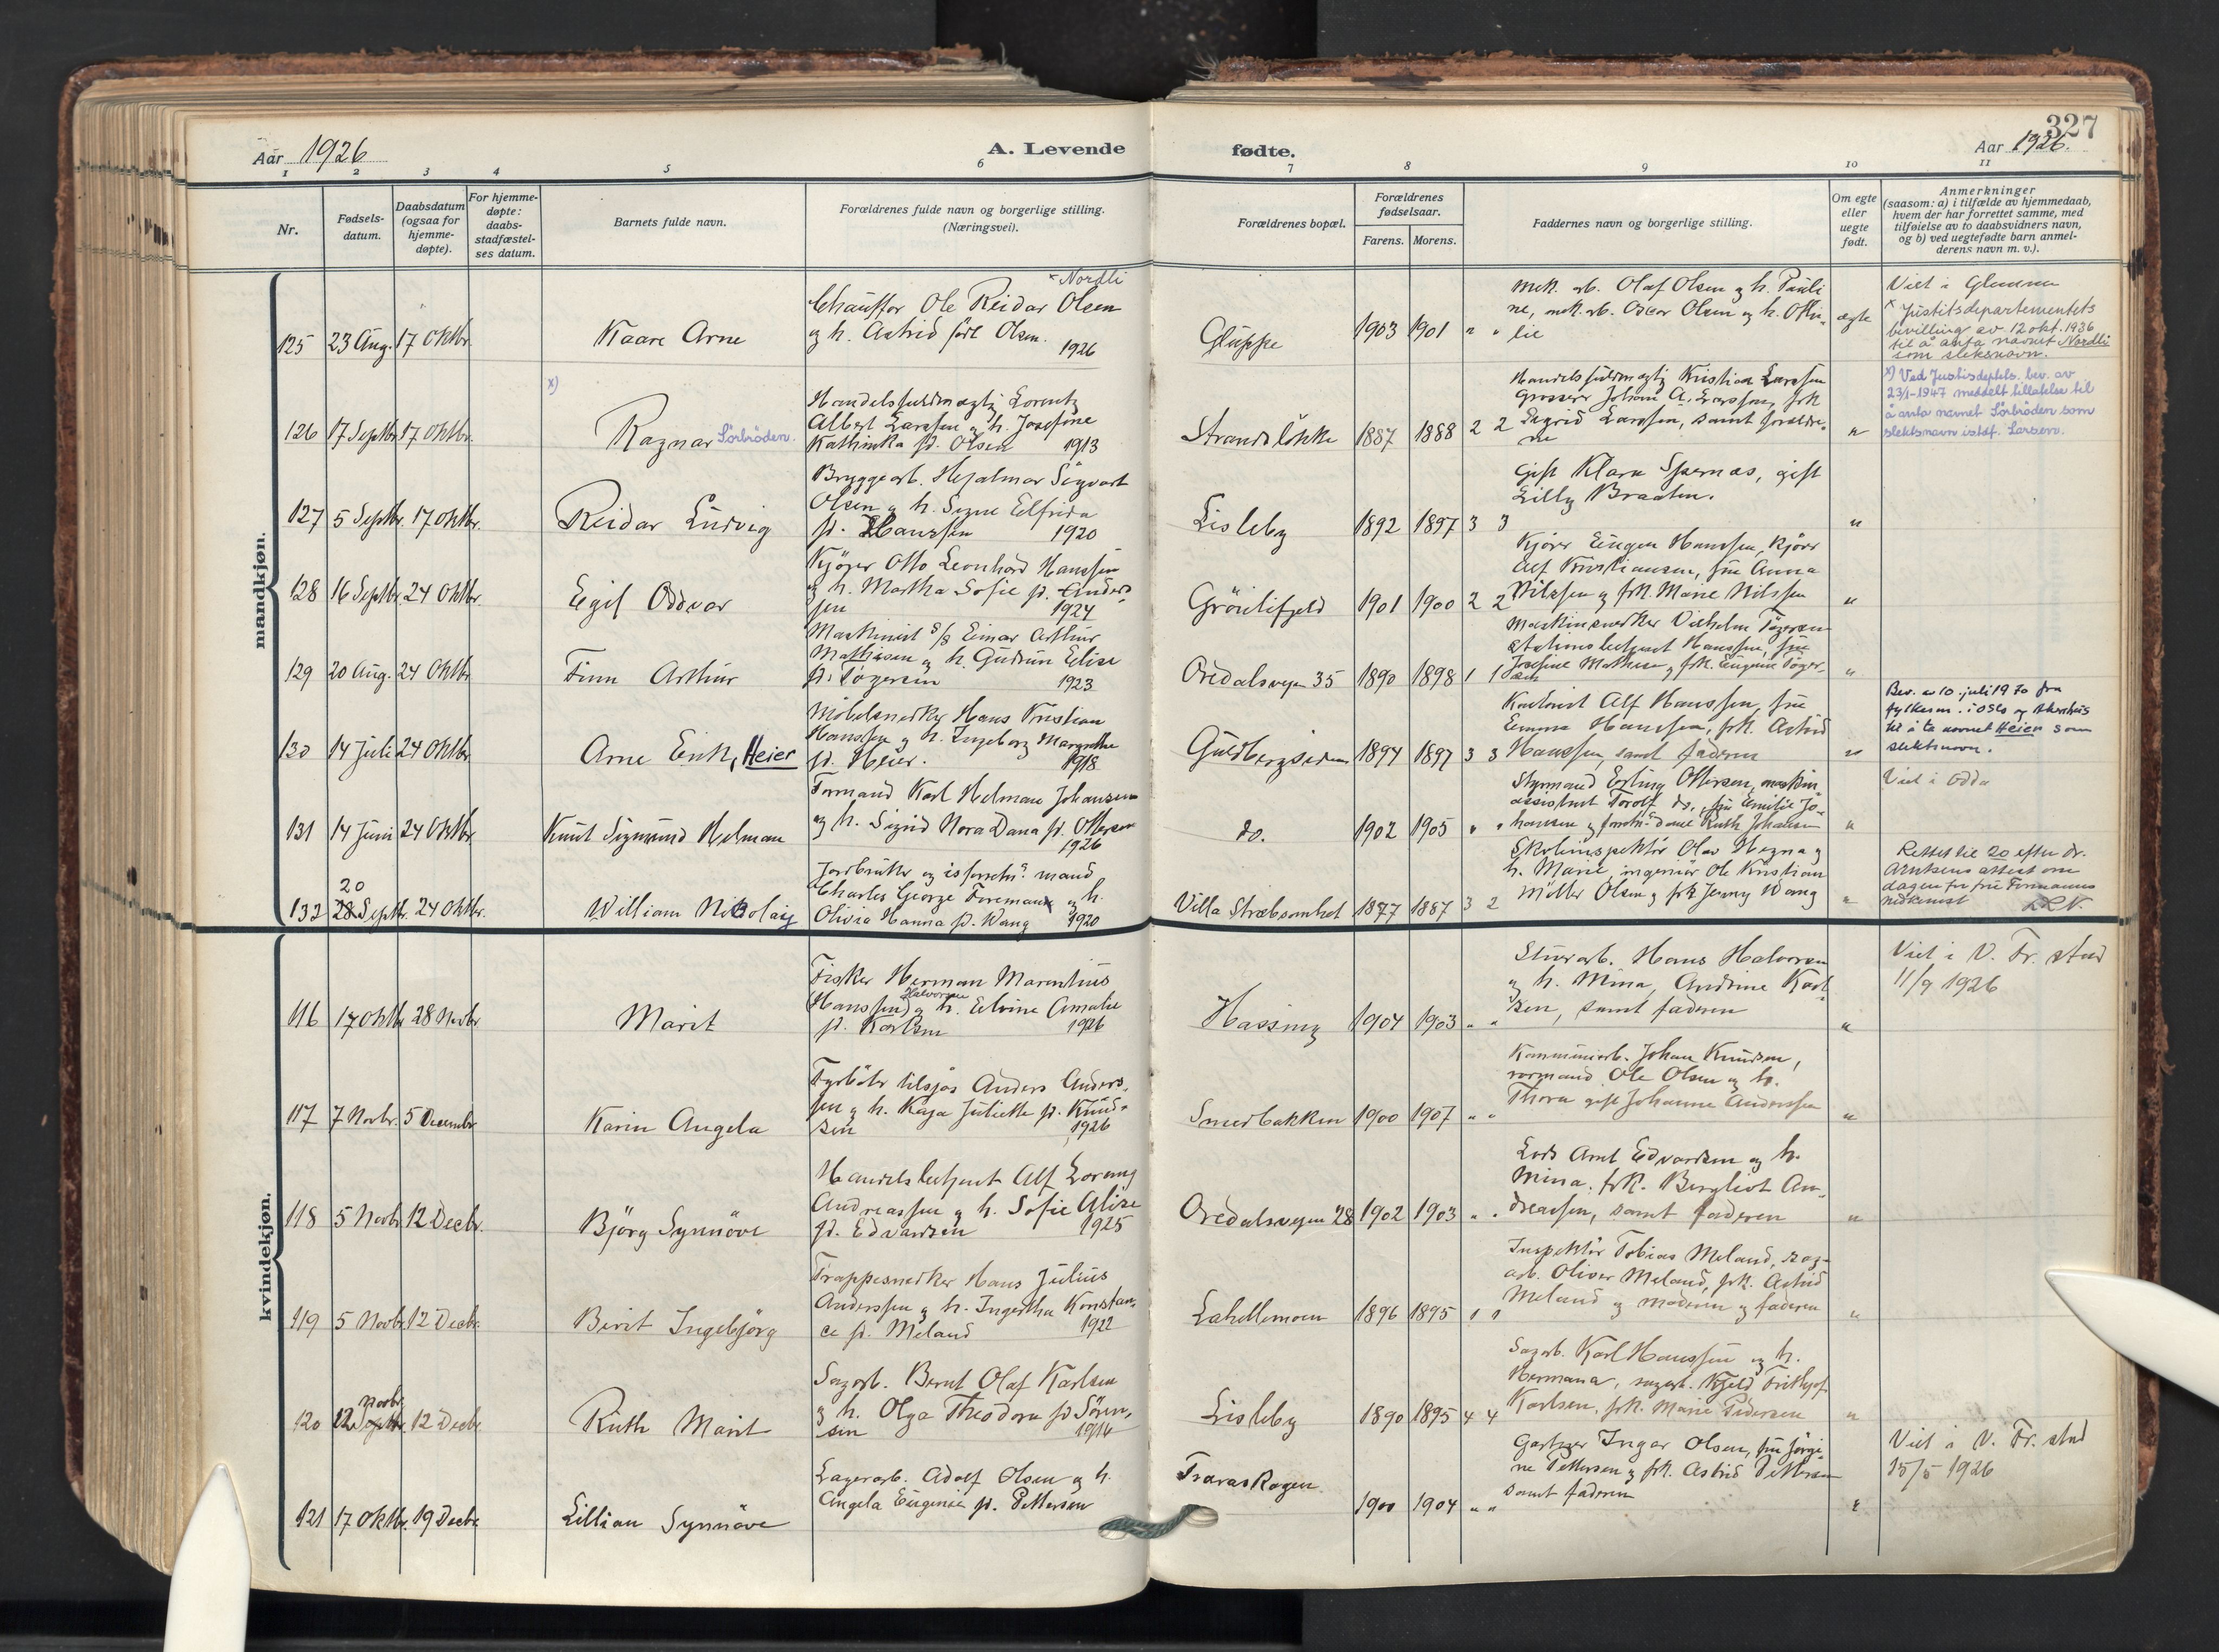 327
Aar 1926
A. Levende
fødte.
Aar 1926.
1 2 3 4 5 6 7 8 9 10 11
Nr.
Fødsels-
datum.
Daabsdatum
(ogsaa for
hjemme-
døpte).
For hjemme-
døpte:
daabs-
stadfæstel-
ses datum.
Barnets fulde navn.
Forældrenes fulde navn og borgerlige stilling.
(Næringsvei).
Forældrenes bopæl.
Forældrenes
fødselsaar.
Farens. Morens.
Faddernes navn og borgerlige stilling.
Om egte
eller
uegte
født.
Anmerkninger
(saasom: a) i tilfælde av hjemmedaab,
hvem der har forrettet samme, med
tilføielse av to daabsvidners navn,
og b) ved uegtefødte barn anmel-
derens navn m. v.).
mandkjøn.
125 23 Aug. 17 Oktbr. Kaare Arne
x Nordli
Chauffør Ole Reidar Olsen
og h. Astrid født Olsen.
1926
Gluppe 1903 1901 " "
mek. arb. Olaf Olsen og h. Pauli
ne, mek. arb. Oscar Olsen og h. Othi-
lie
ægte
Viet i Glemmen
x Justitsdepartementets
bevilling av 12 okt. 1936
til å anta navnet Nordli
som slektsnavn.
x)
126 17 Septbr. 17 Oktbr. Ragnar Sörbröden.
Handelsfuldmægtig Lorentz
Albert Larssen og h. Josefine
Kathinka f. Olsen 1913
Strandsløkke 1887 1888 2 2
Handelsfuldmægtig Kristian Larssen
Grosserer Johan A. Larssen, frk
Sigrid Larssen, samt foreldre-
ne
"
x) Ved Justisdeptets. bev. av
23/1-1947 meddelt tillatelse til
å anta navnet Sörbröden som
slektsnavn istdf. Larsen.
127 5 Septbr. 17 Oktbr. Reidar Ludvig
Bryggearb. Hjalmar Sigvart
Olsen og h. Signe Elfrida
f. Hanssen 1920
Lisleby 1892 1897 3 3
Gift Klara Spernæs, gift
Lilly Braaten.
"
128 16 Septbr. 24 Oktbr. Egil Oddvar
Kjører Otto Leonhard Hanssen
og h. Martha Sofie f. Anders-
sen 1924
Grönlifjeld 1901 1900 2 2
Kjører Eugen Hanssen, Kjører
Alf Kristiansen, frue Anna
Nilssen og frk. Marie Nilssen
"
129 20 Aug. 24 Oktbr Finn Arthur
Maskinist S/S Einar Arthur
Mathisen og h. Gudrun Elise
f. Tøgersen 1923
Oredalsveien 35 1890 1898 1 1
Maskinsnekker Vilhelm Tøgersen
stationsbetjent Hanssen, frue
Josefine Mathisen og frk. Eugenie Tøger-
sen
"
130 14 Juli 24 Oktbr Arne Erik, Heier
Möbelsnedker Hans Kristian
Hanssen og h. Ingeborg Margrethe
f. Heier. 1918
Guldbergsiden 1894 1897 3 3
Kontorist Alf Hanssen, frue
Emma Hanssen, frk. Astrid
Hanssen, samt faderen
"
Bev. av 10. juli 1970 fra
fylkesm. i Oslo og Akershus
til å ta navnet Heier som
slektsnavn.
131 14 Juni 24 Oktbr. Knut Sigmund Helman
Formand Karl Helman Johansen
og h. Sigrid Nora Dana f. Ottersen
1926
do. 1902 1905 " "
Styrmand Erling Ottersen, maskin-
assistent Torolf do., frue Emilie Jo-
hansen og Ruth Johansen
"
Viet i Odda
132 20 28 Septbr. 24 Oktbr. William Nicolay
Jordbruker og isforretn. mand
Charles George Foreman og h.
Olivia Hanna f. Wang 1920
Villa Stræbsomhet 1877 1887 3 2
Skoleinspektør Olav Hegna og
h. Marie, ingeniør Ole Kristian
Möller Olsen og frk Jenny Wang
"
Rettet til 20 efter dr.
Arntzens attest om
dagen for frue Formanns
nedkomst
kvindekjøn.
116 17 Oktbr 28 Novbr Marit
Fisker Herman Marentius
Halvorsen
(Hanssen) og h. Elvine Amalie
f. Karlsen 1926
Hassing 1904 1903 " "
Stuerarb. Hans Halvorsen
og h. Mina, Andrine Karl-
sen, samt faderen
"
Viet i V. Fr. stad
11/9 1926
117 7 Novbr. 5 Decembr Karin Angela
Fyrbøter tilsjøs Anders Anders-
sen og h. Kaja Juliette f. Knud-
sen 1926
Smedbakken 1900 1907 " "
Kommunearb. Johan Knudsen,
formand Ole Olsen og h.
Thora gift Johanne Anderssen
"
118 5 Novbr 12 Decbr. Björg Synnöve
Handelsbetjent Alf Loreng
Andreassen og h. Sofie Alise
f. Edvardsen 1925
Oredalsveien 28 1902 1903 " "
Lods Arnt Edvardsen og h.
Mina. frk. Bergliot An-
dreassen, samt faderen
"
119 5 Novbr. 12 Decbr. Berit Ingebjörg
Trappesnedker Hans Julius
Anderssen og h. Ingertha Konstan-
ce f. Meland 1922
Lahellemoen 1896 1895 " "
Inspektör Tobias Meland, sag-
arb. Oliver Meland, frk. Astrid
Meland og moderen og faderen
"
120 Novbr. 12 Septbr. 12 Decbr Ruth Marit
Sagarb. Bernt Olaf Karlsen
og h. Olga Theodora f. Sören-
sen 1916
Lisleby 1890 1895 4 4
Sagarb. Karl Hanssen og h.
Hermana, sagarb. Kjeld Frithjof
Karlsen. frk. Marie Pedersen
"
121 17 Oktbr. 19 Decbr Lillian Synnöve
Lagerarb. Adolf Olsen og h.
Angela Eugenie f. Pettersen
Traraskogen
1900 1904 " "
Gartner Ingar Olsen, frue Jörgi-
ne Pettersen og frk. Astrid Pettersen
samt faderen
"
Viet i V. Fr. stad
15/5 1926